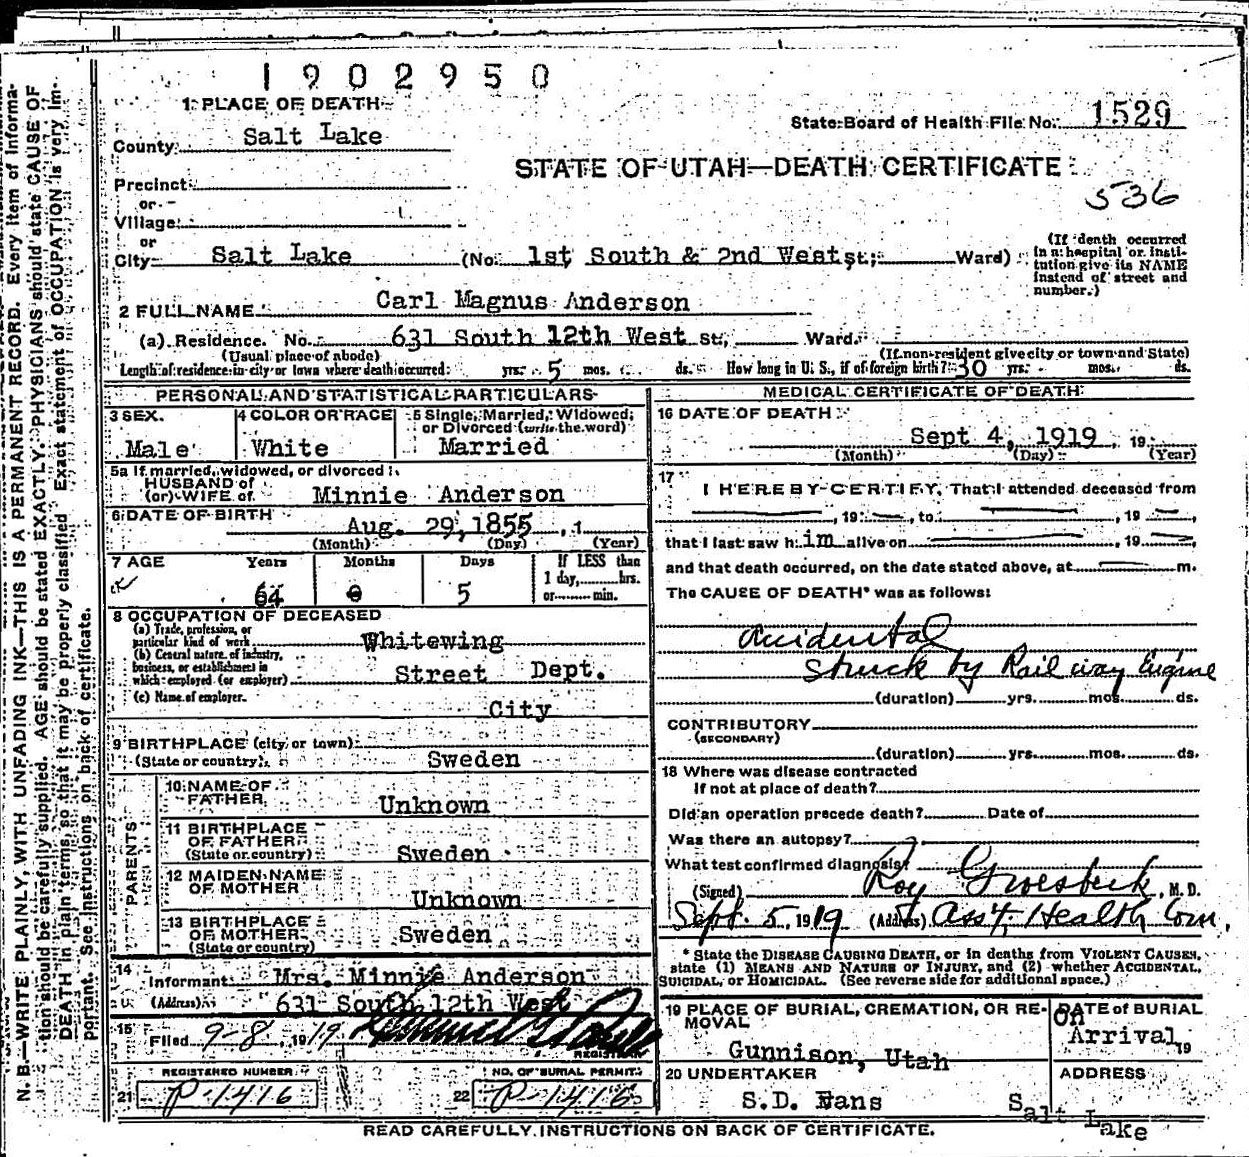 1902950
1 PLACE OF DEATH
State Board of Health File No. 1529
County Salt Lake
STATE OF UTAH—DEATH CERTIFICATE
Precinct
or
536
Village
or
City Salt Lake (No. 1st South & 2nd West St; Ward)
(If death occurred in a hospital or institution give its NAME instead of street and number.)
2 FULL NAME Carl Magnus Anderson
(a) Residence. No. 631 South 12th West St., Ward.
(Usual place of abode) (If non-resident give city or town and State)
Length of residence in city or town where death occurred yrs. 5 mos. ds. How long in U. S., if of foreign birth? 30 yrs. mos. ds.
PERSONAL AND STATISTICAL PARTICULARS
3 SEX 4 COLOR OR RACE 5 Single, Married, Widowed, or Divorced (write the word)
Male White Married
5a If married, widowed, or divorced
HUSBAND of
(or) WIFE of Minnie Anderson
6 DATE OF BIRTH Aug. 29, 1855, 1
(Month) (Day) (Year)
7 AGE Years Months Days If LESS than
1 day, hrs.
64 0 5 or min.
8 OCCUPATION OF DECEASED
(a) Trade, profession, or
particular kind of work Whitewing
(b) General nature of industry,
business, or establishment in
which employed (or employer) Street Dept.
(c) Name of employer
City
9 BIRTHPLACE (city or town)
(State or country) Sweden
PARENTS
10 NAME OF
FATHER Unknown
11 BIRTHPLACE
OF FATHER
(State or country) Sweden
12 MAIDEN NAME
OF MOTHER Unknown
13 BIRTHPLACE
OF MOTHER
(State or country) Sweden
14
Informant Mrs. Minnie Anderson
(Address) 631 South 12th West
15 Filed 9-8, 1919
REGISTRAR
REGISTERED NUMBER NO. OF BURIAL PERMIT
21 P-1416 22 P-1416
MEDICAL CERTIFICATE OF DEATH
16 DATE OF DEATH
Sept 4, 1919 19
(Month) (Day) (Year)
17
I HEREBY CERTIFY, That I attended deceased from
, 19 , to , 19 ,
that I last saw h im alive on , 19 ,
and that death occurred, on the date stated above, at m.
The CAUSE OF DEATH* was as follows:
Accidental
Struck by Rail way Engine
(duration) yrs. mos. ds.
CONTRIBUTORY
(SECONDARY)
(duration) yrs. mos. ds.
18 Where was disease contracted
if not at place of death?
Did an operation precede death? Date of
Was there an autopsy?
What test confirmed diagnosis?
(Signed) Roy Groesbeck, M. D.
Sept. 5, 1919 (Address) Ass't, Health Com.
* State the DISEASE CAUSING DEATH, or in deaths from VIOLENT CAUSES,
state (1) MEANS AND NATURE OF INJURY, and (2) whether ACCIDENTAL,
SUICIDAL, or HOMICIDAL. (See reverse side for additional space.)
19 PLACE OF BURIAL, CREMATION, OR RE-
MOVAL
Gunnison, Utah
DATE of BURIAL
On
Arrival, 19
20 UNDERTAKER
S.D. Evans
ADDRESS
Salt Lake
READ CAREFULLY INSTRUCTIONS ON BACK OF CERTIFICATE.
N. B.—WRITE PLAINLY, WITH UNFADING INK—THIS IS A PERMANENT RECORD. Every item of informa-
tion should be carefully supplied. AGE should be stated EXACTLY. PHYSICIANS should state CAUSE OF
DEATH in plain terms, so that it may be properly classified. Exact statement of OCCUPATION is very im-
portant. See instructions on back of certificate.